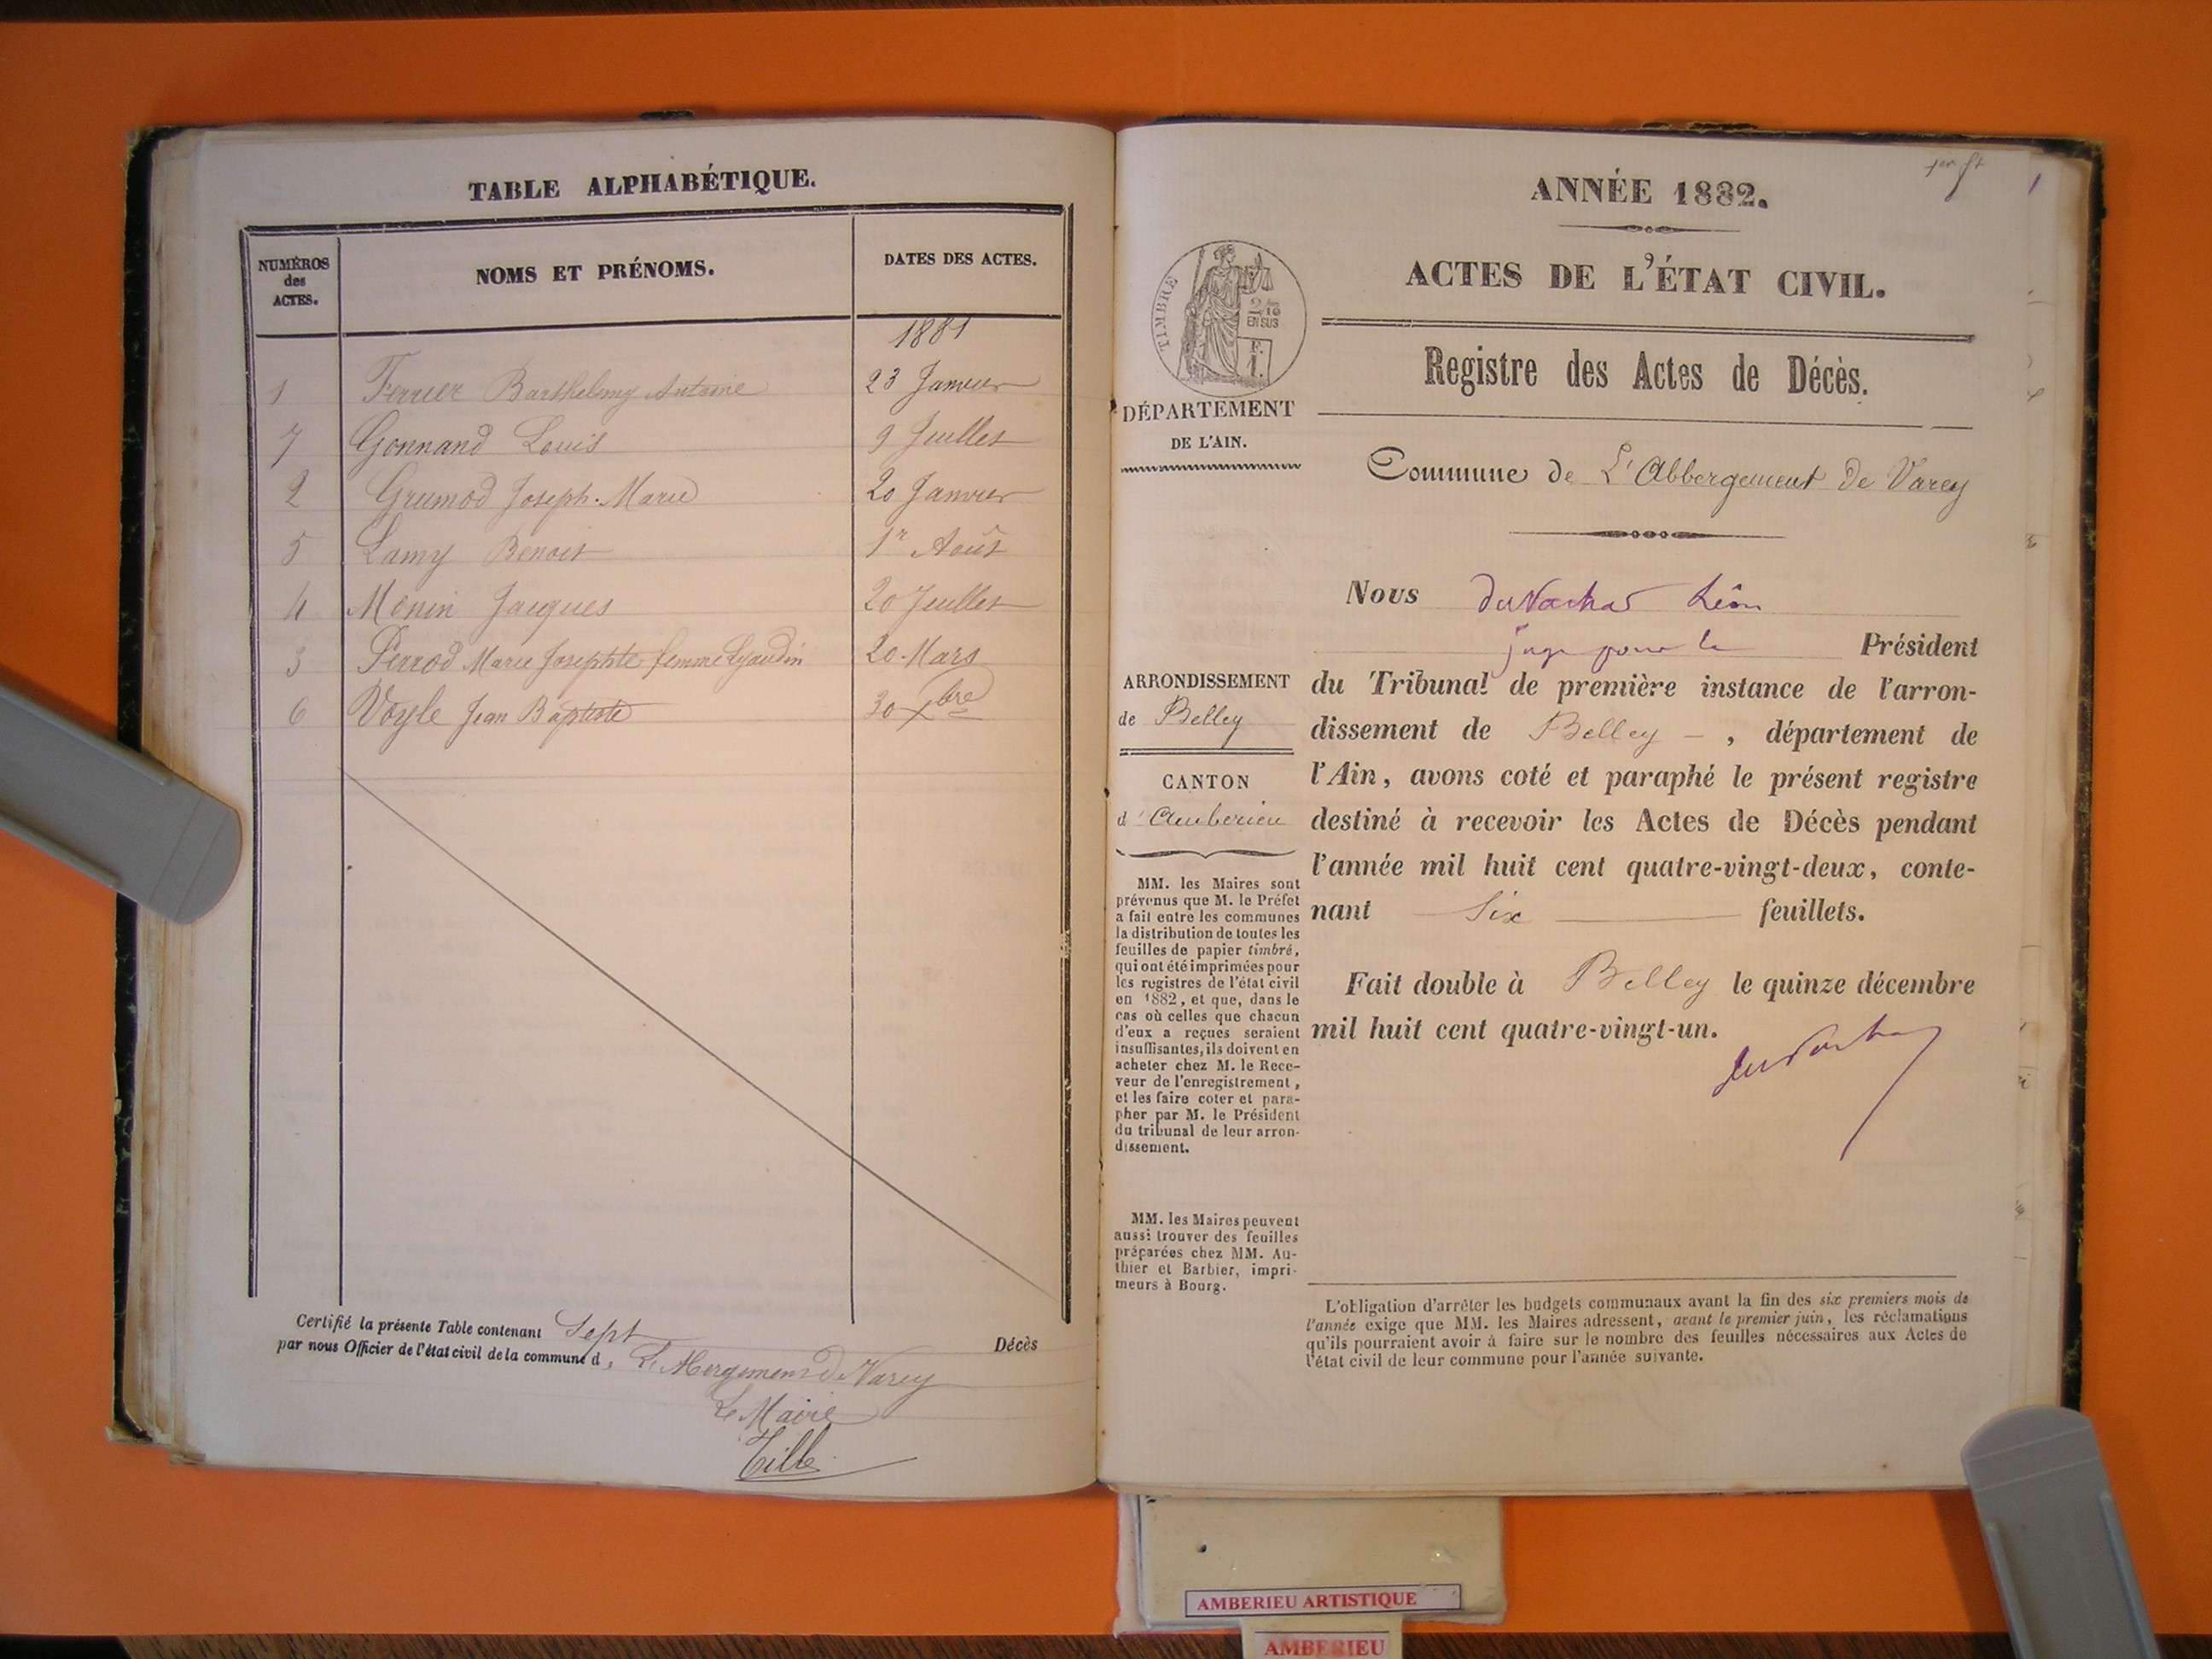 TABLE ALPHABÉTIQUE.
NUMÉROS
des
ACTES.
NOMS ET PRÉNOMS.
DATES DES ACTES.
1881
1 Ferrier Barthelemy Antoine 23 Janvier
7 Gonnand Louis 9 Juillet
2 Grumod Joseph-Marie 20 Janvier
5 Lamy Benoit 1r Août
4 Monin Jacques 20 Juillet
3 Perrod Marie Josephte femme Lyaudin 20 Mars
6 Voyle Jean Baptiste 30 Xbre
Certifié la présente Table contenant Sept Décès
par nous Officier de l'état civil de la commune d, L'Abergement de Varey
Le Maire
Tille
1er ft
1
ANNÉE 1882.
ACTES DE L'ÉTAT CIVIL.
TIMBRE
2/10
EN SUS
F.
1.
Registre des Actes de Décès.
DÉPARTEMENT
DE L'AIN.
Commune de L'Abbergement de Varey
Nous Léon
juge pour le Président
ARRONDISSEMENT
de Belley
CANTON
d'Amberieu
du Tribunal de première instance de l'arron-
dissement de Belley - , département de
l'Ain, avons coté et paraphé le présent registre
destiné à recevoir les Actes de Décès pendant
l'année mil huit cent quatre-vingt-deux, conte-
nant Six feuillets.
Fait double à Belley le quinze décembre
mil huit cent quatre-vingt-un.
MM. les Maires sont
prévenus que M. le Préfet
a fait entre les communes
la distribution de toutes les
feuilles de papier timbré,
qui ont été imprimées pour
les registres de l'état civil
en 1882, et que, dans le
cas où celles que chacun
d'eux a reçues seraient
insuffisantes, ils doivent en
acheter chez M. le Rece-
veur de l'enregistrement,
et les faire coter et para-
pher par M. le Président
du tribunal de leur arron-
dissement.
MM. les Maires peuvent
aussi trouver des feuilles
préparées chez MM. Au-
thier et Barbier, impri-
meurs à Bourg.
L'obligation d'arrêter les budgets communaux avant la fin des six premiers mois de
l'année exige que MM. les Maires adressent, avant le premier juin, les réclamations
qu'ils pourraient avoir à faire sur le nombre des feuilles nécessaires aux Actes de
l'état civil de leur commune pour l'année suivante.
AMBERIEU ARTISTIQUE
AMBERIEU